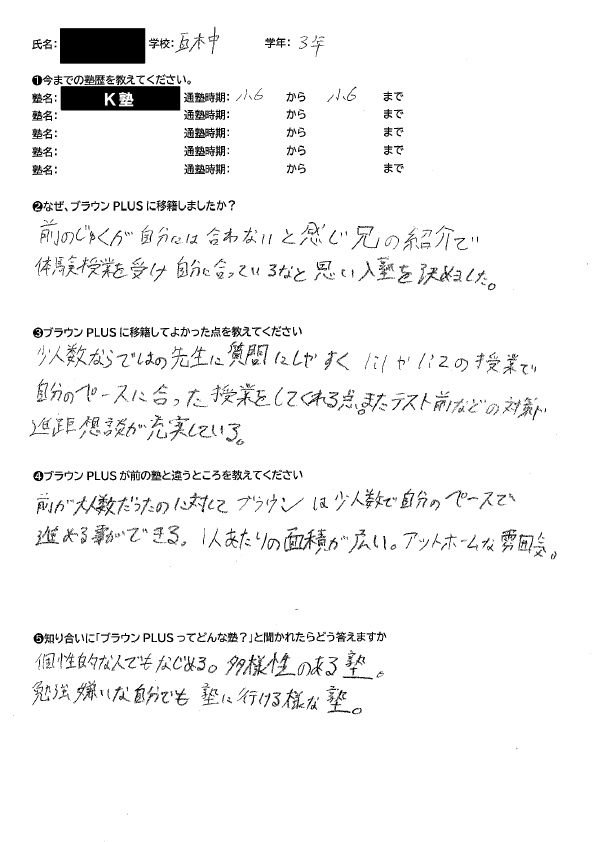 氏名: 学校: 互木中 学年: 3年
❶今までの塾歴を教えてください。
塾名: K塾 通塾時期: 小6 から 小6 まで
塾名: 通塾時期: から まで
塾名: 通塾時期: から まで
塾名: 通塾時期: から まで
塾名: 通塾時期: から まで
❷なぜ、ブラウンPLUSに移籍しましたか？
前のじゅくが自分には合わないと感じ兄の紹介で
体験授業を受け自分に合っているなと思い入塾を決めました。
❸ブラウンPLUSに移籍してよかった点を教えてください
少人数ならではの先生に質問にしやすく 1:1か1:2の授業で
自分のペースに合った授業をしてくれる点。またテスト前などの対策や
進距想談が充実している。
❹ブラウンPLUSが前の塾と違うところを教えてください
前が大人数だったのに対して ブラウンは少人数で自分のペースで
進める事ができる。1人あたりの面積が広い。アットホームな雰囲気。
❺知り合いに「ブラウンPLUSってどんな塾？」と聞かれたらどう答えますか
個性的な人でもなじめる。多様性のある塾。
勉強嫌いな自分でも 塾に行ける様な塾。